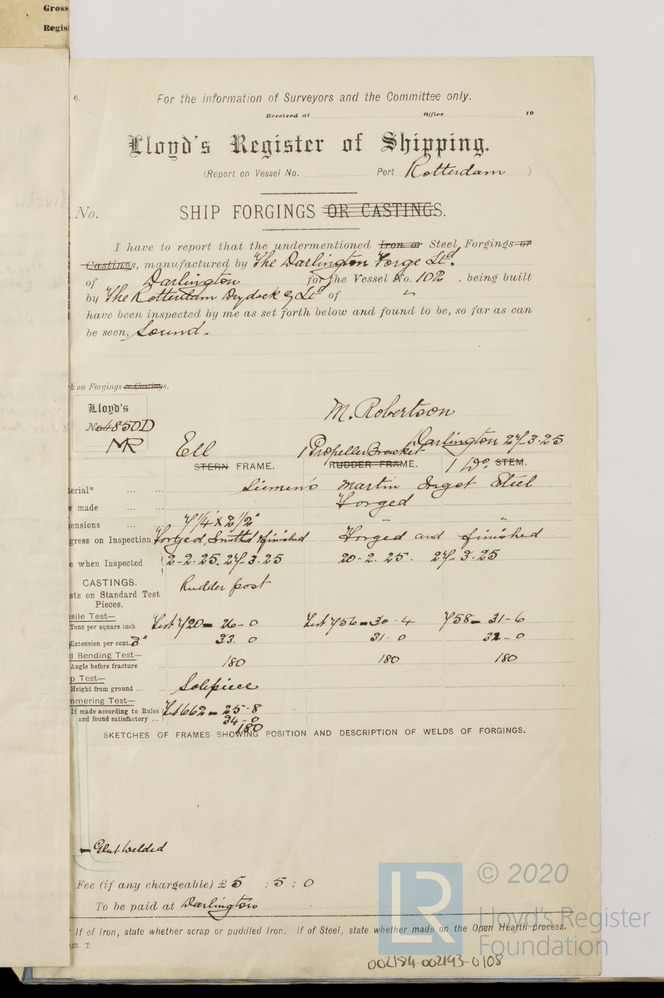 Gross
Regis
6.
For the information of Surveyors and the Committee only.
Received at Office 19
Lloyd's Register of Shipping.
(Report on Vessel No. Port Rotterdam )
No. SHIP FORGINGS OR CASTINGS.
I have to report that the undermentioned Iron or Steel Forgings or
Castings, manufactured by The Darlington Forge Ltd.
of Darlington for the Vessel No. 102 , being built
by The Rotterdam Drydock Co Ltd of "
have been inspected by me as set forth below and found to be, so far as can
be seen, Sound.
k on Forgings or Castings.
Lloyd's
No 4850D
MR
M. Robertson
Darlington 27-3-25
Ell 1 Propeller Bracket 1 Do.
STERN FRAME. RUDDER FRAME. STEM.
terial* Siemens Martin Ingot Steel
w made Forged
ensions 7 1/4" x 2 1/2" " "
gress on Inspection Forged, Smithed & finished Forged and finished
e when Inspected 2-2-25. 27-3-25 20-2-25. 27-3-25
CASTINGS. Rudder post
sts on Standard Test
Pieces.
sile Test—
Tons per square inch Test 720 = 26-0 Test 756 = 30-4 758 = 31-6
Extension per cent. 3" 33.0 31-0 32-0
d Bending Test—
Angle before fracture 180 180 180
p Test—
Height from ground ... Solepiece
mmering Test—
If made according to Rules
and found satisfactory ... 1662 = 25-8
34-0
180
SKETCHES OF FRAMES SHOWING POSITION AND DESCRIPTION OF WELDS OF FORGINGS.
Glut Welded
Fee (if any chargeable) £5 : 5 : 0
To be paid at Darlington
* If of Iron, state whether scrap or puddled Iron. If of Steel, state whether made on the Open Hearth process.
T.
LR
© 2020
Lloyd's Register
Foundation
002184-002193-0108